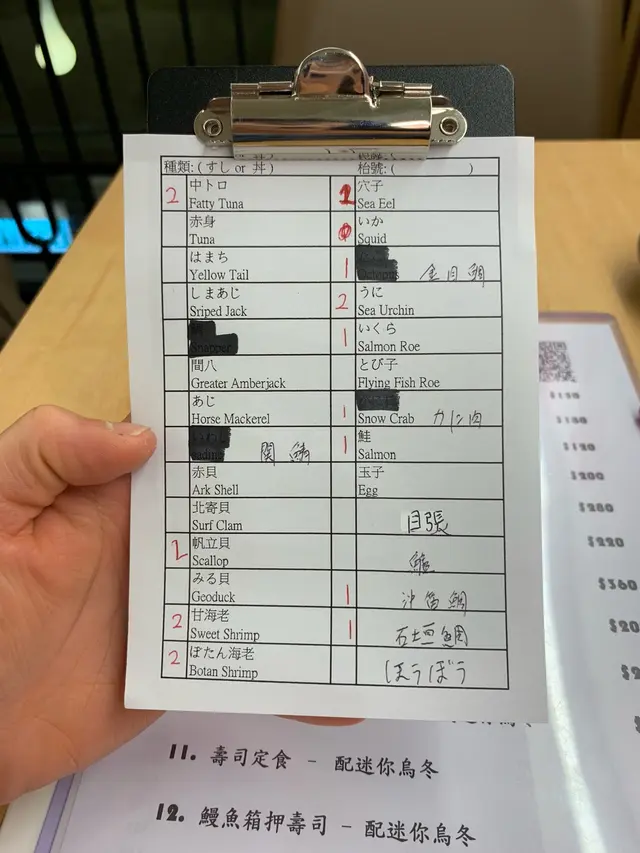 種類: ( すし or 丼 )
枱號: ( )
2 中トロ
Fatty Tuna
赤身
Tuna
はまち
Yellow Tail
しまあじ
Sriped Jack
間八
Greater Amberjack
あじ
Horse Mackerel
関 鯖
赤貝
Ark Shell
北寄貝
Surf Clam
2 帆立貝
Scallop
みる貝
Geoduck
2 甘海老
Sweet Shrimp
2 ぼたん海老
Botan Shrimp
1 穴子
Sea Eel
いか
Squid
1 金目鯛
2 うに
Sea Urchin
1 いくら
Salmon Roe
とび子
Flying Fish Roe
1 Snow Crab カに肉
1 鮭
Salmon
玉子
Egg
目張
1 沖笛鯛
1 石垣鯛
ほうぼう
$180
$120
$200
$280
$220
$360
11. 壽司定食 - 配迷你烏冬
12. 鰻魚箱押壽司 - 配迷你烏冬